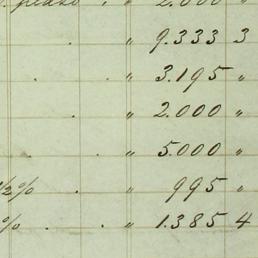 . " 2.000 "
. " 9.333 3
. . " 3.195 "
. " 2.000 "
. . " 5.000 "
1/2% . " 995 "
% . . " 1.385 4